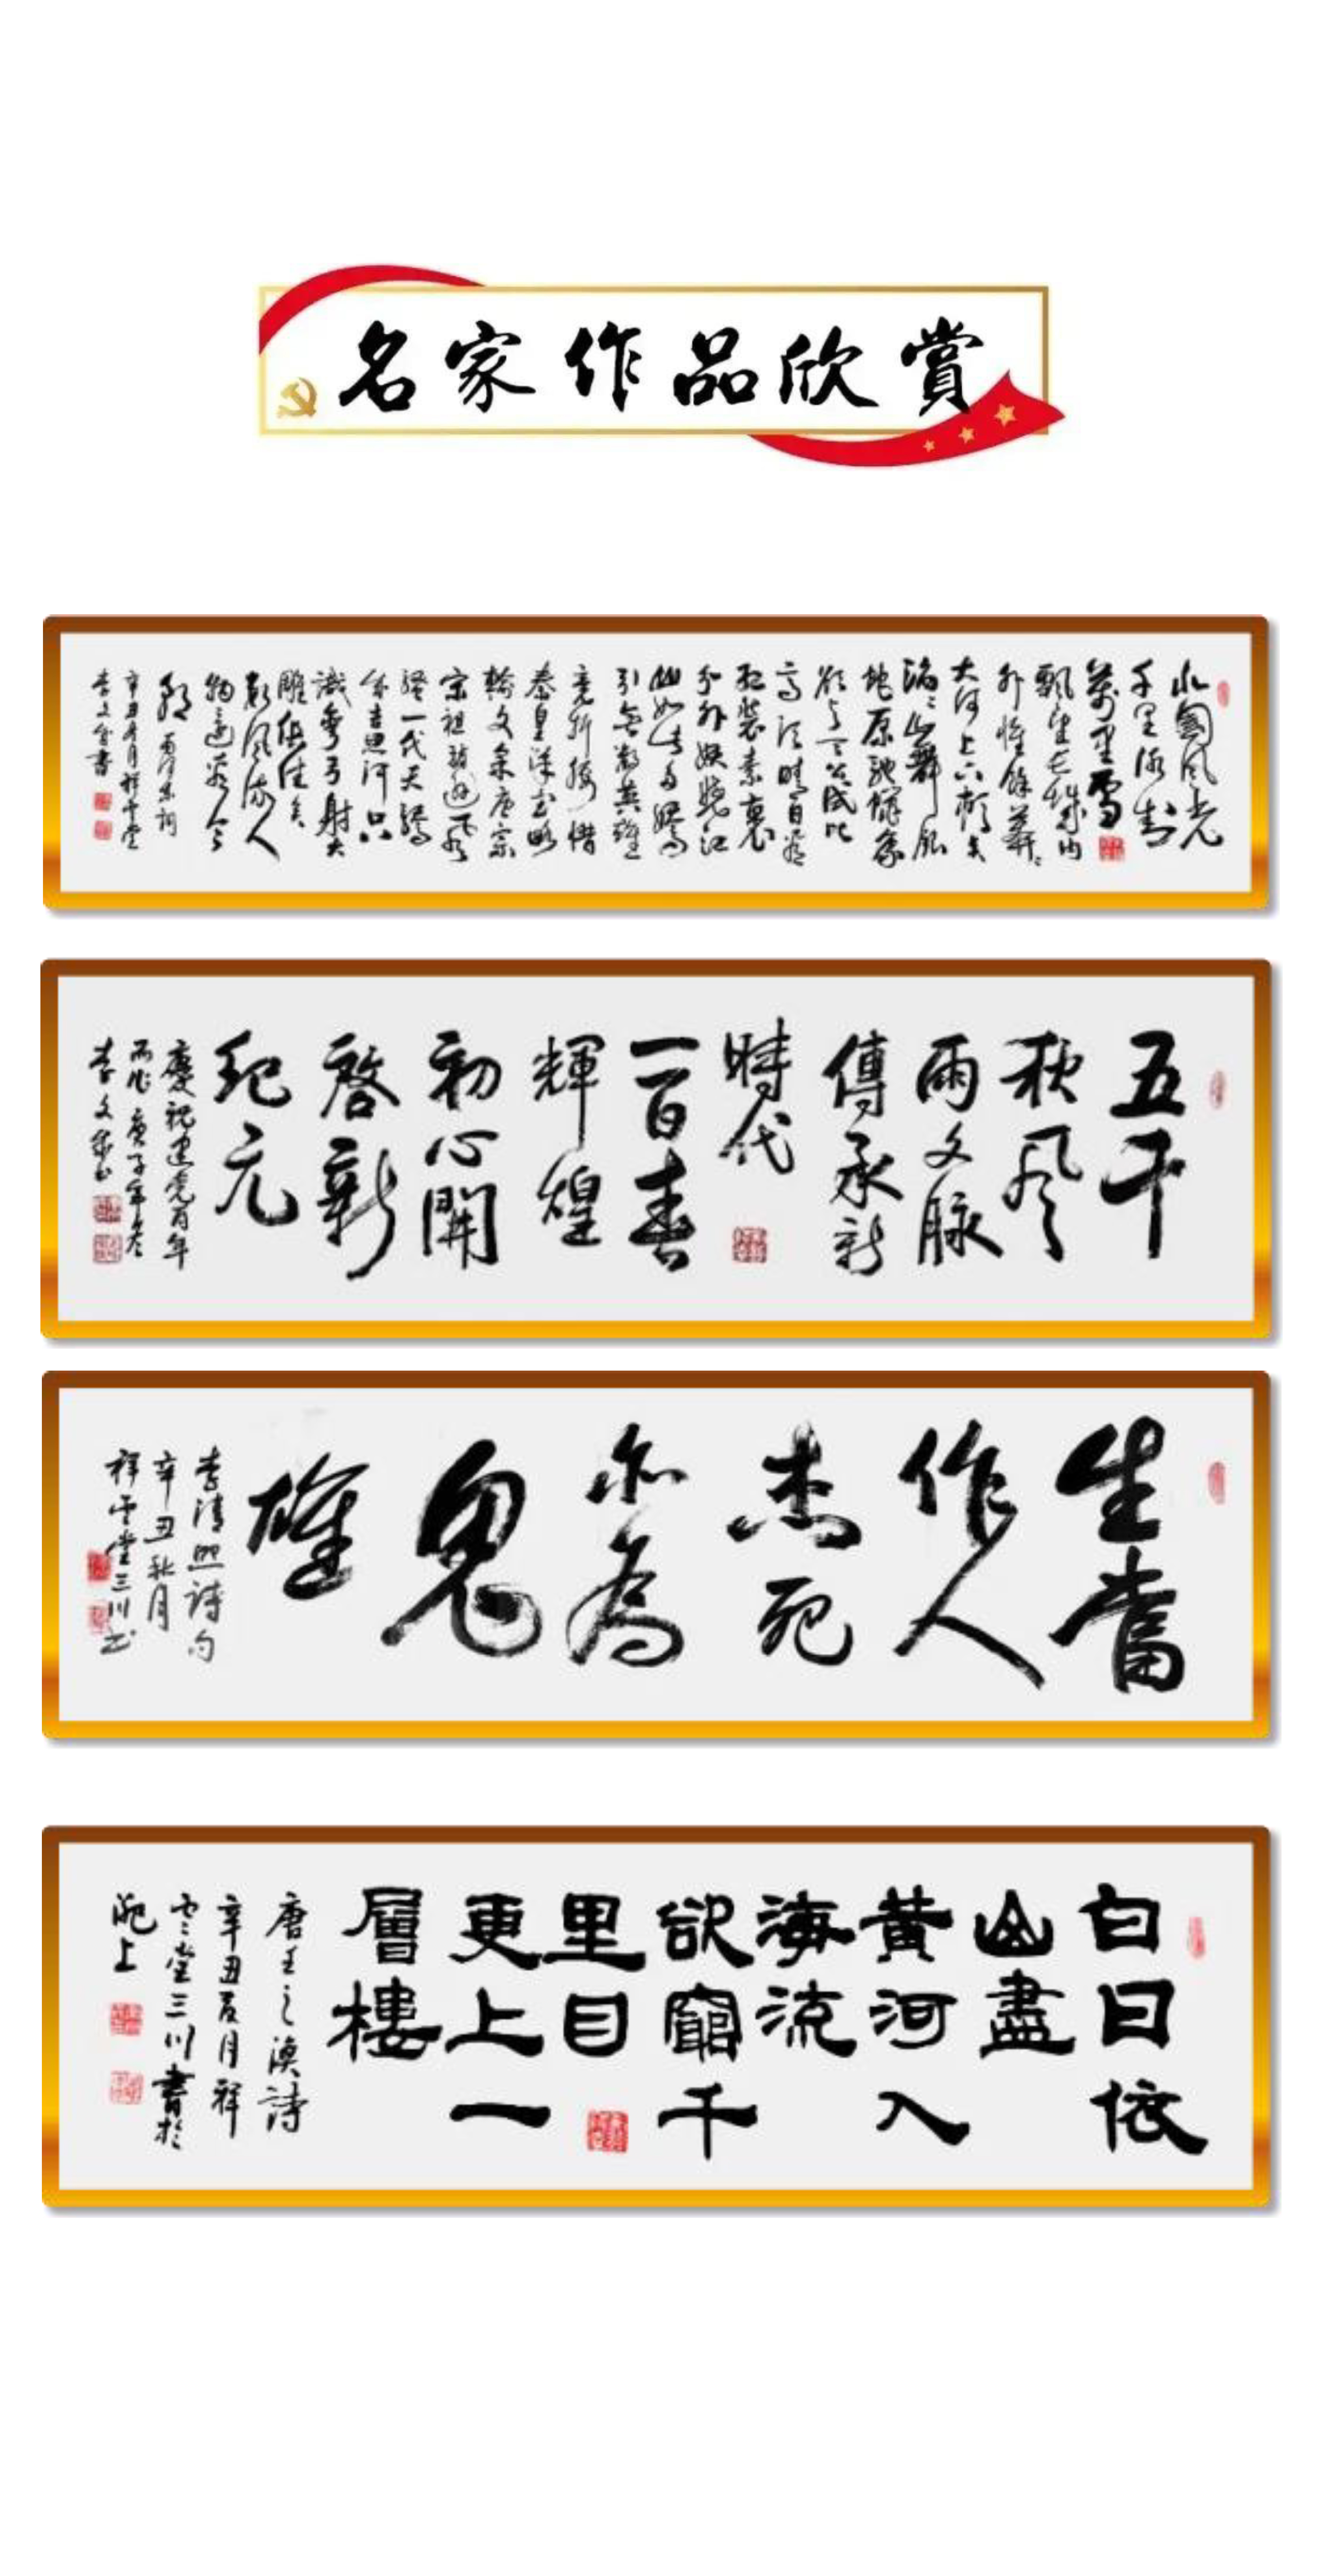 名家作品欣赏
北国风光
千里冰封
萬里雪
飄望長城内
外惟餘莽々
大河上下頓失
滔々山舞銀
蛇原馳蠟象
欲与天公試比
高須晴日看
紅裝素裹
分外妖嬈江
山如此多嬌
引無數英雄
競折腰惜
秦皇漢武略
輸文采唐宗
宋祖稍遜風
騷一代天驕
成吉思汗只
識彎弓射大
雕俱往矣
數風流人
物還看今
朝
五千
秋風
雨文脉
傳承新
時代
一百春
輝煌
初心開
啓新
紀元
慶祝建党百年
而作庚子年冬
生當
作人
杰死
亦為
鬼
雄
李清照詩句
辛丑秋月
祥雲堂三川书
白日依
山盡
黄河入
海流
欲窮千
里目
更上一
層樓
唐王之渙詩
辛丑夏月祥
雲堂三川書於
肥上